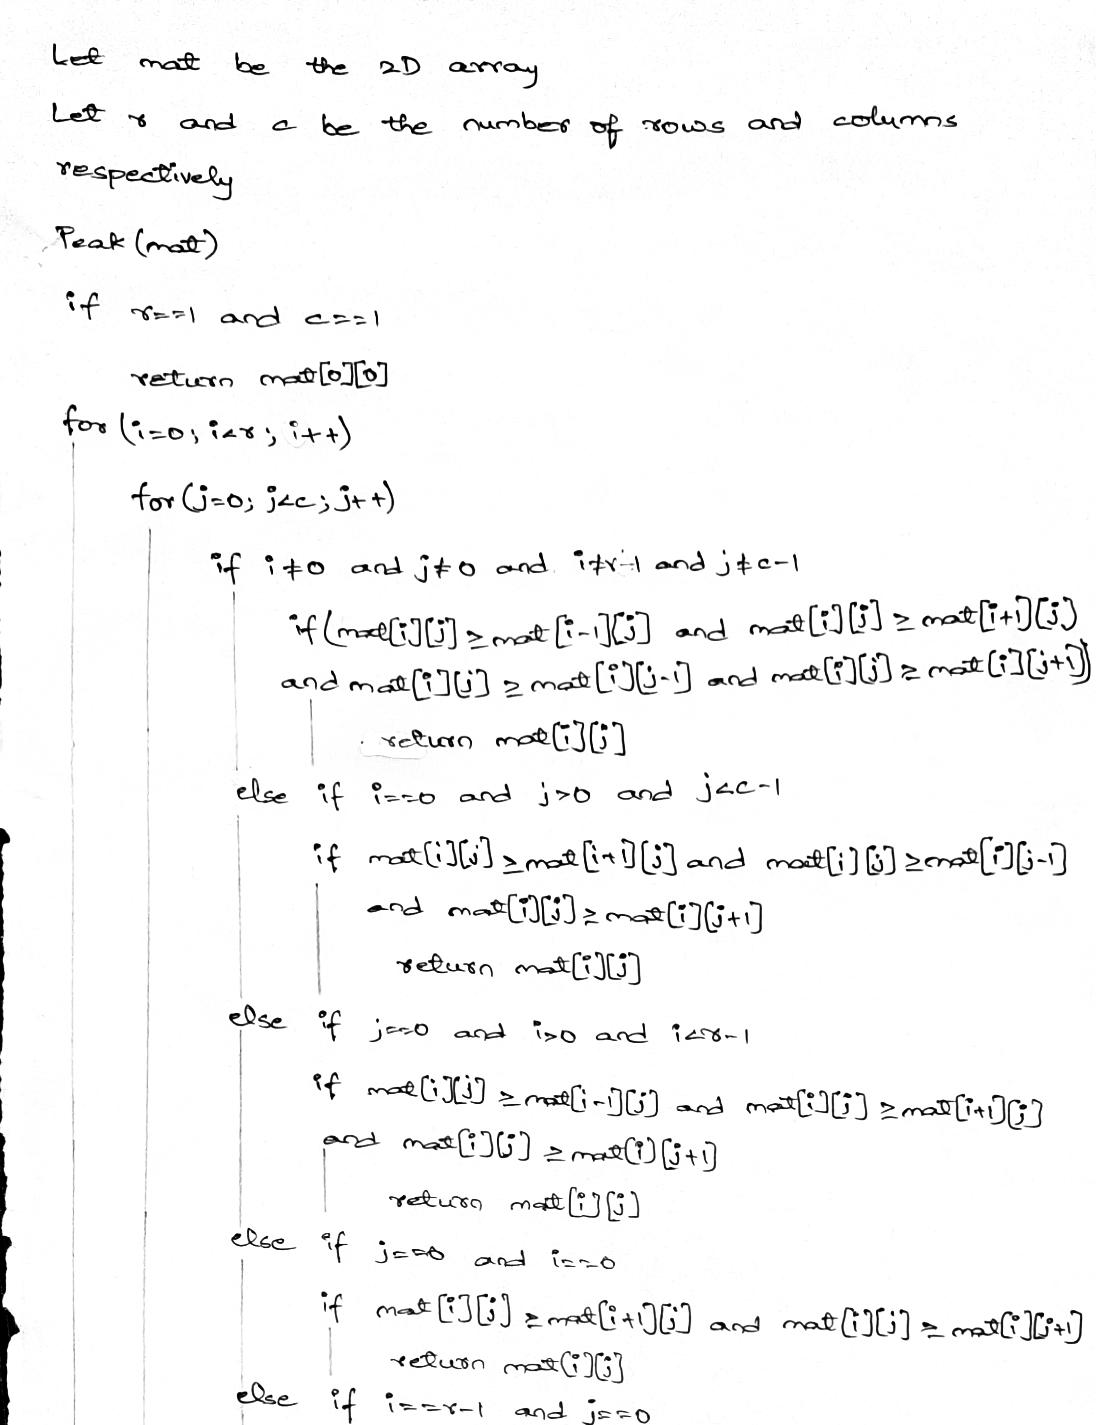 Let mat be the 2D array
Let r and c be the number of rows and columns
respectively
Peak (mat)
if r==1 and c==1
return mat[0][0]
for (i=0; i<r; i++)
for (j=0; j<c; j++)
if i≠0 and j≠0 and i≠r-1 and j≠c-1
if (mat[i][j] ≥ mat[i-1][j] and mat[i][j] ≥ mat[i+1][j]
and mat[i][j] ≥ mat[i][j-1] and mat[i][j] ≥ mat[i][j+1])
return mat[i][j]
else if i==0 and j>0 and j<c-1
if mat[i][j] ≥ mat[i+1][j] and mat[i][j] ≥ mat[i][j-1]
and mat[i][j] ≥ mat[i][j+1]
return mat[i][j]
else if j==0 and i>0 and i<r-1
if mat[i][j] ≥ mat[i-1][j] and mat[i][j] ≥ mat[i+1][j]
and mat[i][j] ≥ mat[i][j+1]
return mat[i][j]
else if j==0 and i==0
if mat[i][j] ≥ mat[i+1][j] and mat[i][j] ≥ mat[i][j+1]
return mat[i][j]
else if i==r-1 and j==0